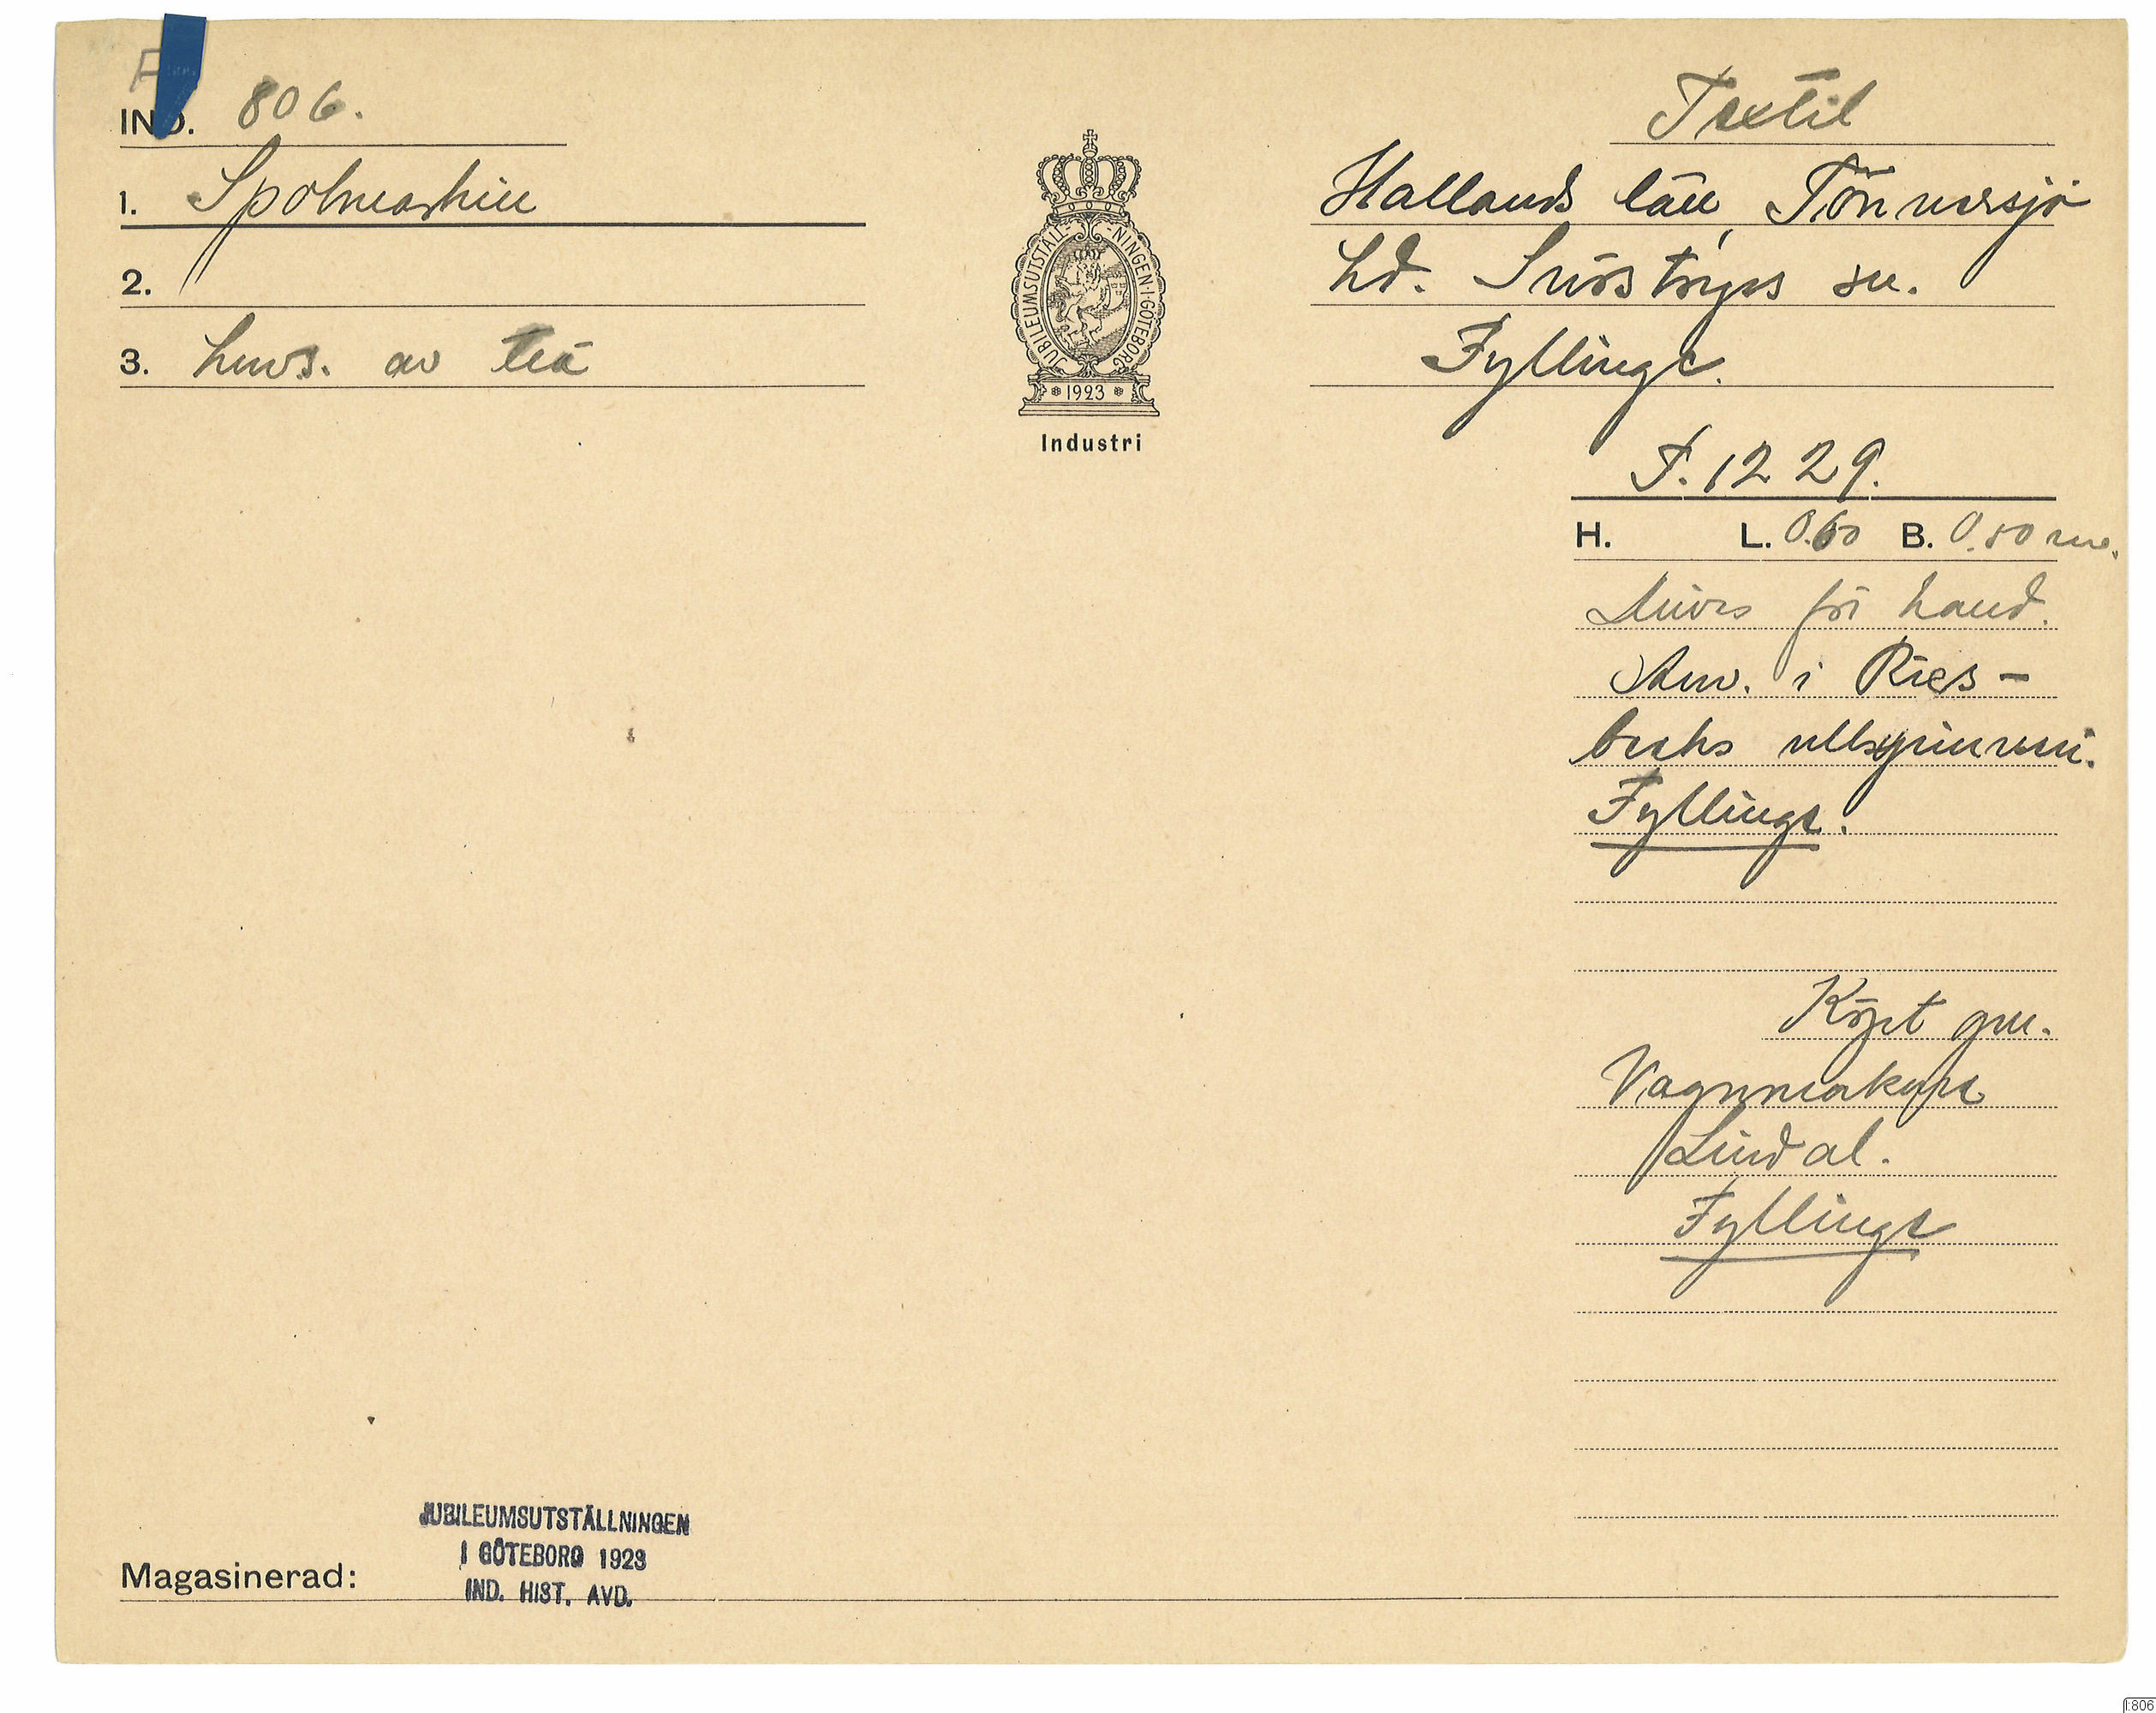 F
IND. 806.
1. Spolmaskin
2.
3. huvs. av trä
JUBILEUMSUTSTÄLL-NINGEN·I·GÖTEBORG
1923
Industri
Textil
Hallands län, Tönnersjö
hd. Snöstorps sn.
Fyllinge.
F. 1229.
H. L. 0.60 B. 0.80 m.
Drivs för hand.
Anv. i Ries-
becks ullspinneri.
Fyllinge.
Köpt gm.
Vagnmakare
Lindal.
Fyllinge
Magasinerad:
JUBILEUMSUTSTÄLLNINGEN
I GÖTEBORG 1923
IND. HIST. AVD.
I:806